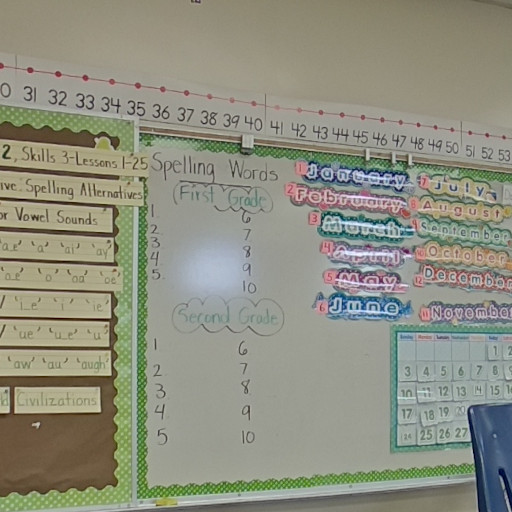 0 31 32 33 34 35 36 37 38 39 40 41 42 43 44 45 46 47 48 49 50 51 52 53
2, Skills 3-Lessons 1-25
ive: Spelling Alternatives
or Vowel Sounds
'a_e' 'a' 'ai' 'ay'
'o_e' 'o' 'oa' 'oe'
'i_e' 'i' 'ie'
'ue' 'u_e' 'u'
'aw' 'au' 'augh'
Civilizations
Spelling Words
First Grade
1. 6
2. 7
3. 8
4. 9
5. 10
Second Grade
1 6
2 7
3. 8
4. 9
5 10
1 January
2 February
3 March
4 April
5 May
6 June
7 July
8 August
9 September
10 October
12 December
11 November
1 2
3 4 5 6 7 8 9
10 11 12 13 14 15
17 18 19 20
25 26 27